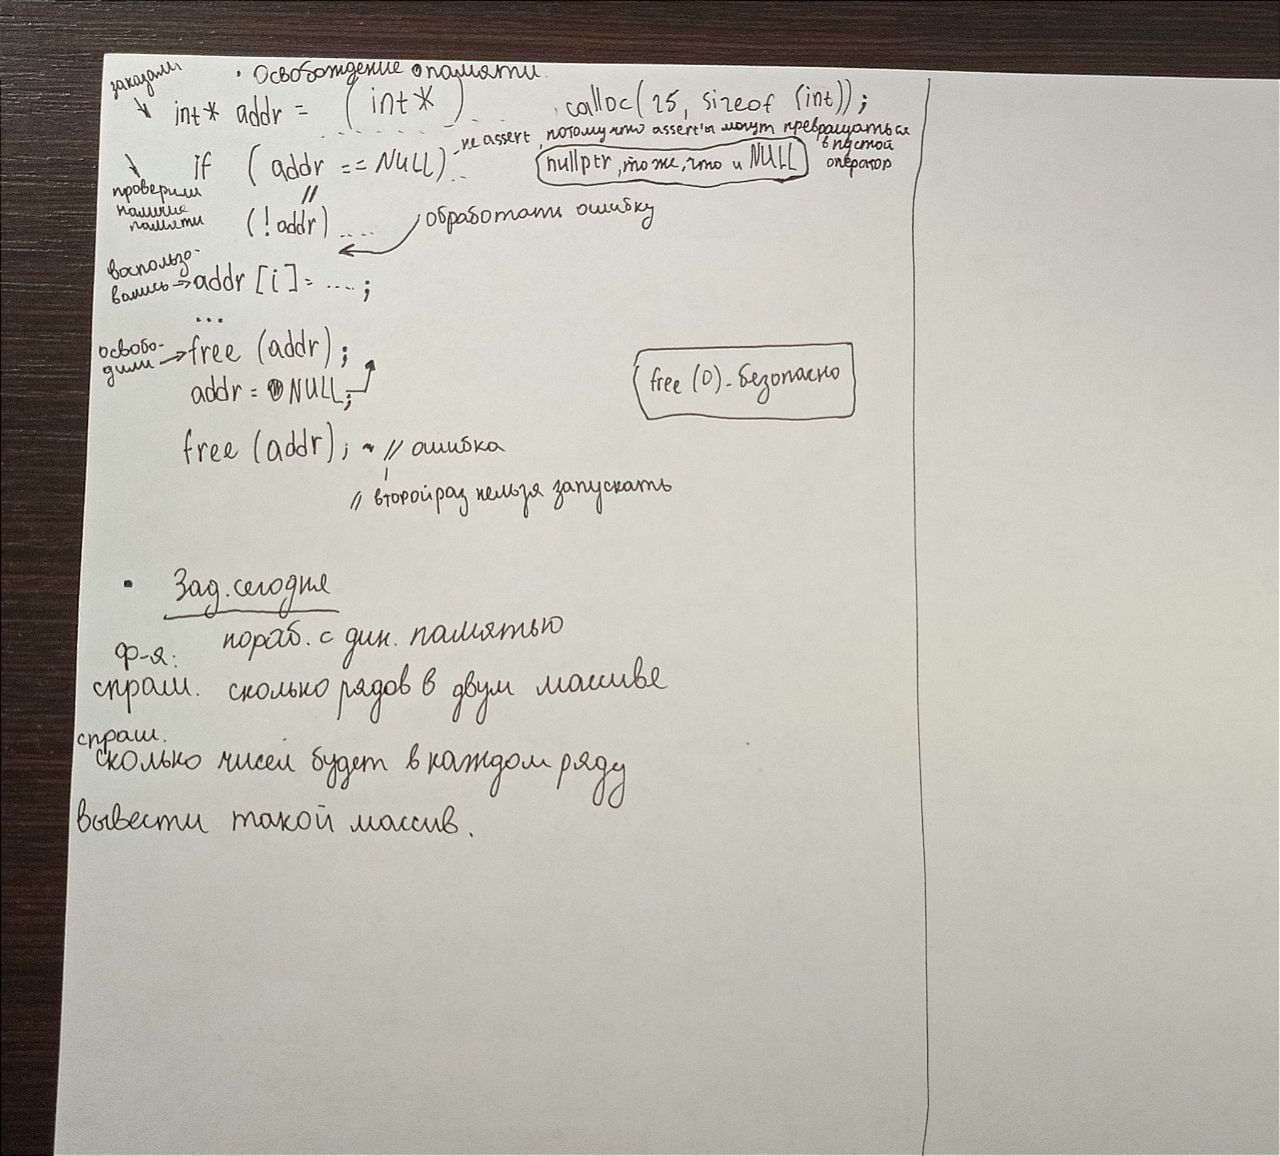 • Освобождение памяти.
заказали
int* addr = (int*) ..... calloc(25, sizeof (int));
не assert, потому что assert'ы могут превращаться
в пустой
оператор
if (addr == NULL) ...
nullptr, то же, что и NULL
проверили
наличие
памяти
//
(!addr) ....
обработать ошибку
воспользо-
вались → addr [i] = ....;
...
освобо-
дили → free (addr);
addr = NULL;
free (0) - безопасно
free (addr); ~ // ошибка
// второй раз нельзя запускать
• Зад. сегодня
пораб. с дин. памятью
ф-я:
спраш. сколько рядов в двум массиве
спраш.
сколько чисел будет в каждом ряду
вывести такой массив.